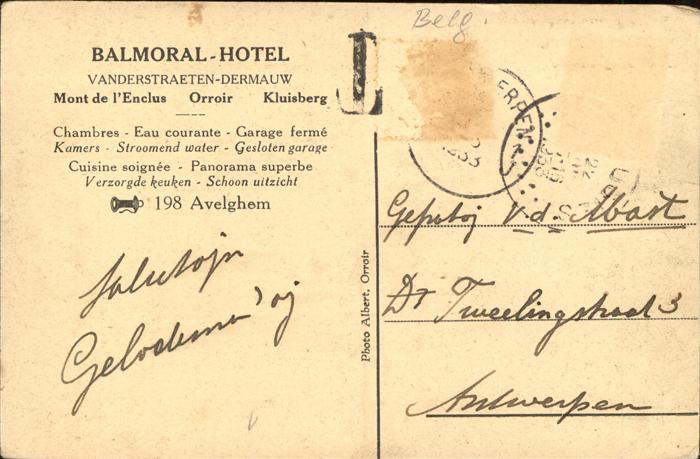 Belg.
BALMORAL-HOTEL
VANDERSTRAETEN-DERMAUW
Mont de l'Enclus Orroir Kluisberg
Chambres - Eau courante - Garage fermé
Kamers - Stroomend water - Gesloten garage
Cuisine soignée - Panorama superbe
Verzorgde keuken - Schoon uitzicht
198 Avelghem
Salutojn
T
Photo Albert, Orroir
Gefratoj v. d. Abast
Dr Tweelingstraat 3
Antwerpen